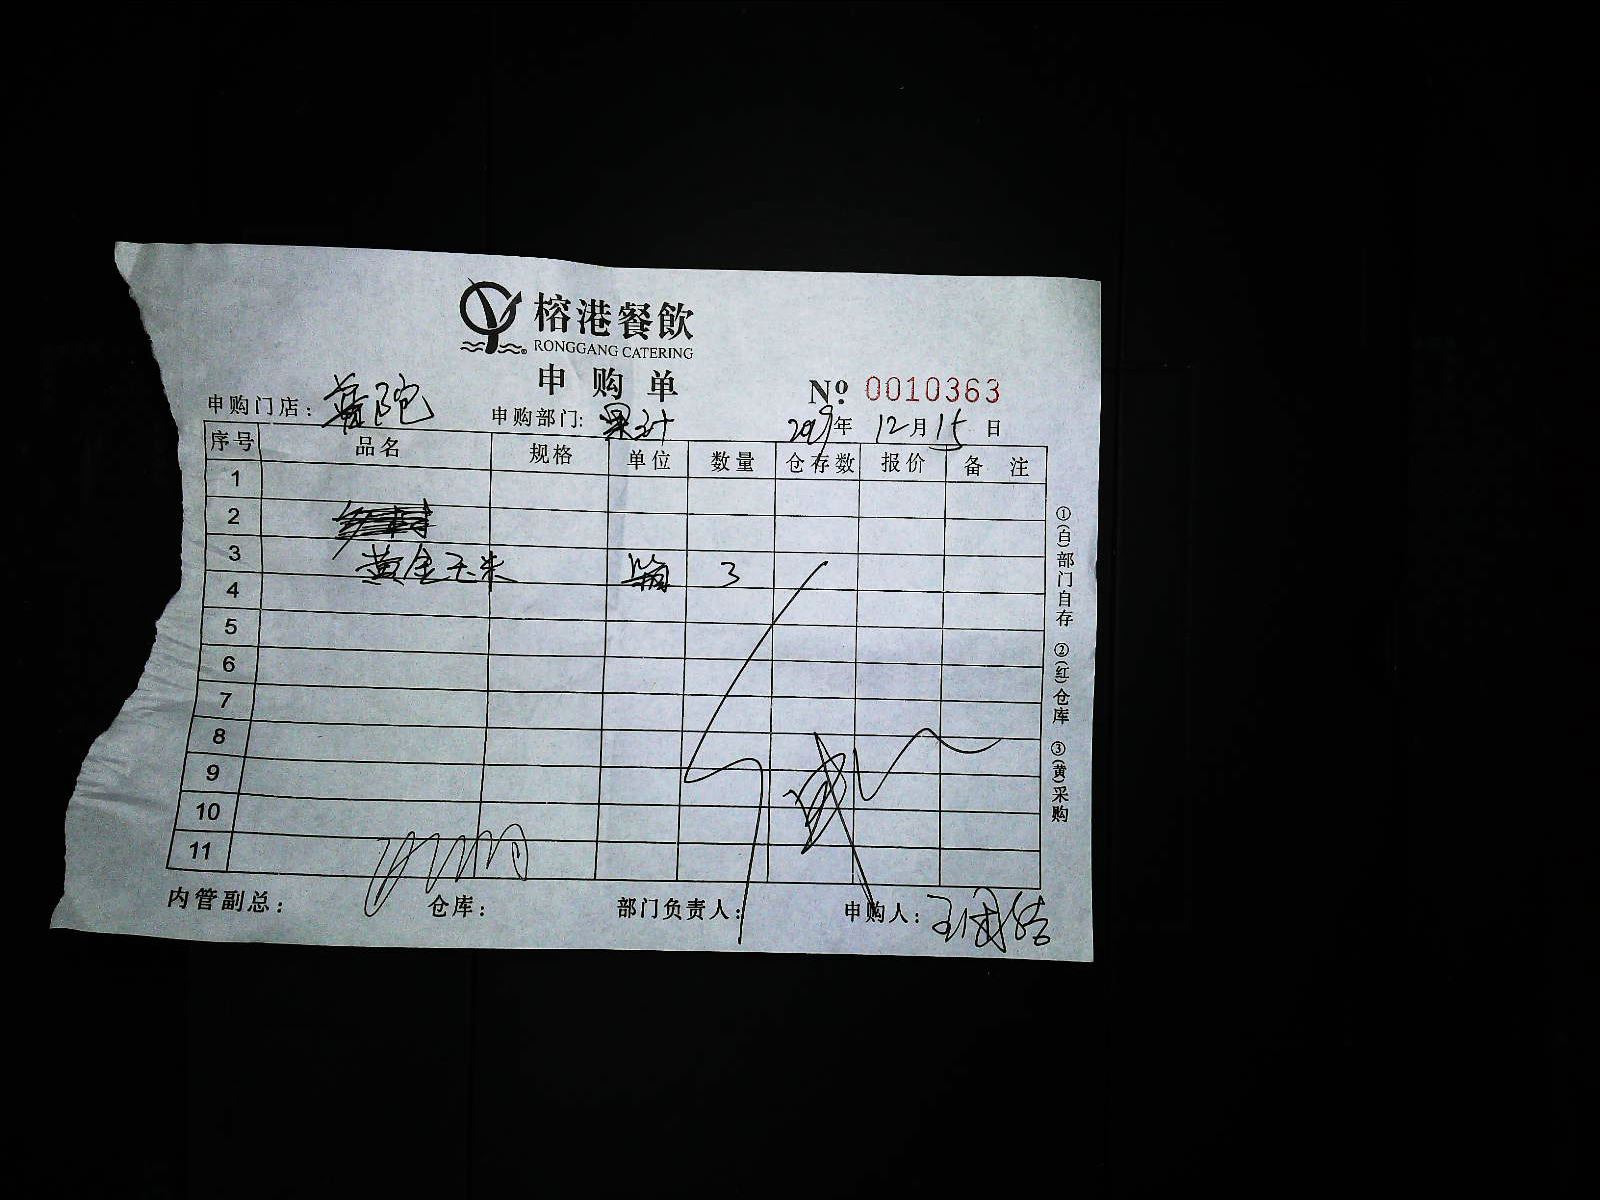 榕港餐飲
RONGGANG CATERING
申购单
Nº 0010363
申购门店：普陀 申购部门：果汁 2019年 12月 15 日
序号 品名 规格 单位 数量 仓存数 报价 备注
1
2
3 黄金玉米 箱 3
4
5
6
7
8
9
10
11
内管副总： 仓库： 部门负责人： 申购人：王
①(白)部门自存 ②(红)仓库 ③(黄)采购